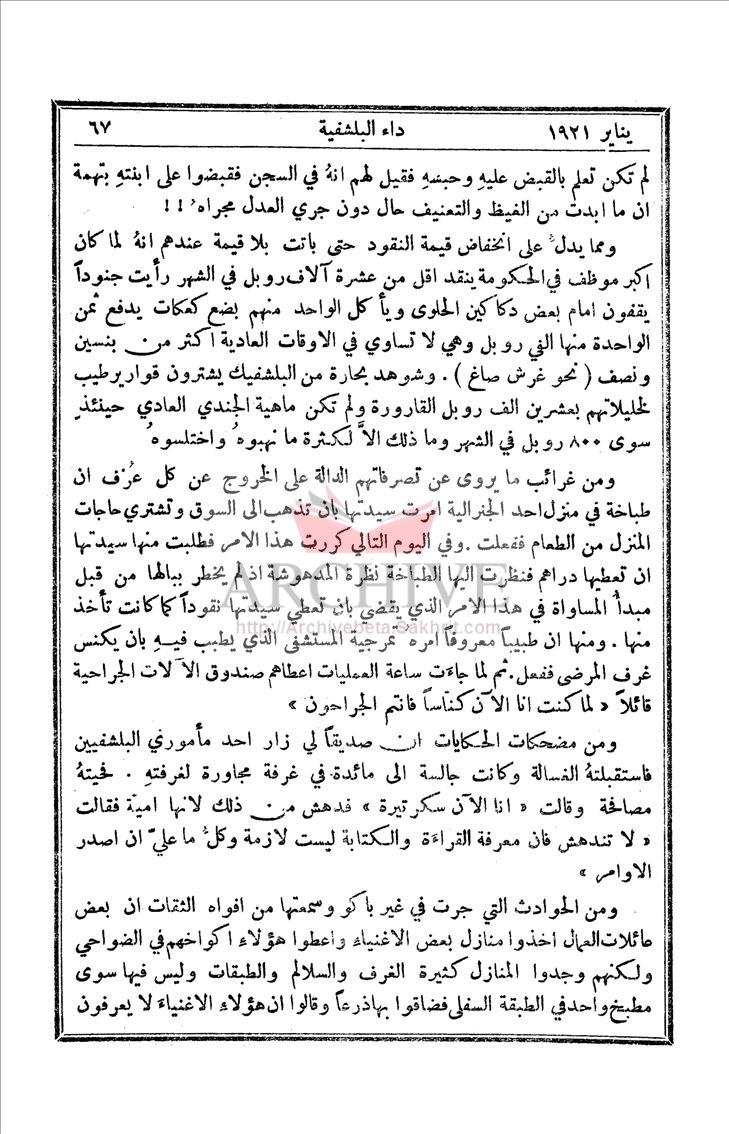 يناير ١٩٢١ داء البلشفية ٦٧
لم تكن تعلم بالقبض عليهِ وحبسهِ فقيل لهم انهُ في السجن فقبضوا على ابنتهِ بتهمة
ان ما ابدت من الغيظ والتعنيف حال دون جري العدل مجراه' ! !
ومما يدلُّ على انخفاض قيمة النقود حتى باتت بلا قيمة عندهم انهُ لما كان
اكبر موظف في الحكومة ينقد اقل من عشرة آلاف روبل في الشهر رأيت جنوداً
يقفون امام بعض دكاكين الحلوى ويأكل الواحد منهم بضع كعكات يدفع ثمن
الواحدة منها الفي روبل وهي لا تساوي في الاوقات العادية اكثر من بنسين
ونصف ( نحو غرش صاغ ) . وشوهد بحارة من البلشفيك يشترون قوارير طيب
لخليلاتهم بعشرين الف روبل القارورة ولم تكن ماهية الجندي العادي حينئذٍ
سوى ٨٠٠ روبل في الشهر وما ذلك الاَّ لكثرة ما نهبوهُ واختلسوهُ
ومن غرائب ما يروى عن تصرفاتهم الدالة على الخروج عن كل عُرف ان
طباخة في منزل احد الجنرالية امرت سيدتها بان تذهب الى السوق وتشتري حاجات
المنزل من الطعام ففعلت . وفي اليوم التالي كررت هذا الامر فطلبت منها سيدتها
ان تعطيها دراهم فنظرت اليها الطباخة نظرة المدهوشة اذ لم يخطر ببالها من قبل
ARCHIVE
مبدأُ المساواة في هذا الامر الذي يقضي بان تعطي سيدتها نقوداً كما كانت تأخذ
http://Archivebeta.Sakhrit.com
منها . ومنها ان طبيباً معروفاً امرهُ تمرجية المستشفى الذي يطبب فيهِ بان يكنس
غرف المرضى ففعل . ثم لما جاءت ساعة العمليات اعطاهم صندوق الآلات الجراحية
قائلاً « لما كنت انا الآن كنّاساً فانتم الجراحون »
ومن مضحكات الحكايات ان صديقاً لي زار احد مأموري البلشفيين
فاستقبلتهُ الغسالة وكانت جالسة الى مائدة في غرفة مجاورة لغرفتهِ . فحيتهُ
مصافحة وقالت « انا الآن سكرتيرة » فدهش من ذلك لانها امية فقالت
« لا تندهش فان معرفة القراءة والكتابة ليست لازمة وكلُّ ما عليَّ ان اصدر
الاوامر »
ومن الحوادث التي جرت في غير باكو وسمعتها من افواه الثقات ان بعض
عائلات العمال اخذوا منازل بعض الاغنياء واعطوا هؤلاء اكواخهم في الضواحي
ولكنهم وجدوا المنازل كثيرة الغرف والسلالم والطبقات وليس فيها سوى
مطبخ واحد في الطبقة السفلى فضاقوا بها ذرعاً وقالوا ان هؤلاءِ الاغنياءَ لا يعرفون